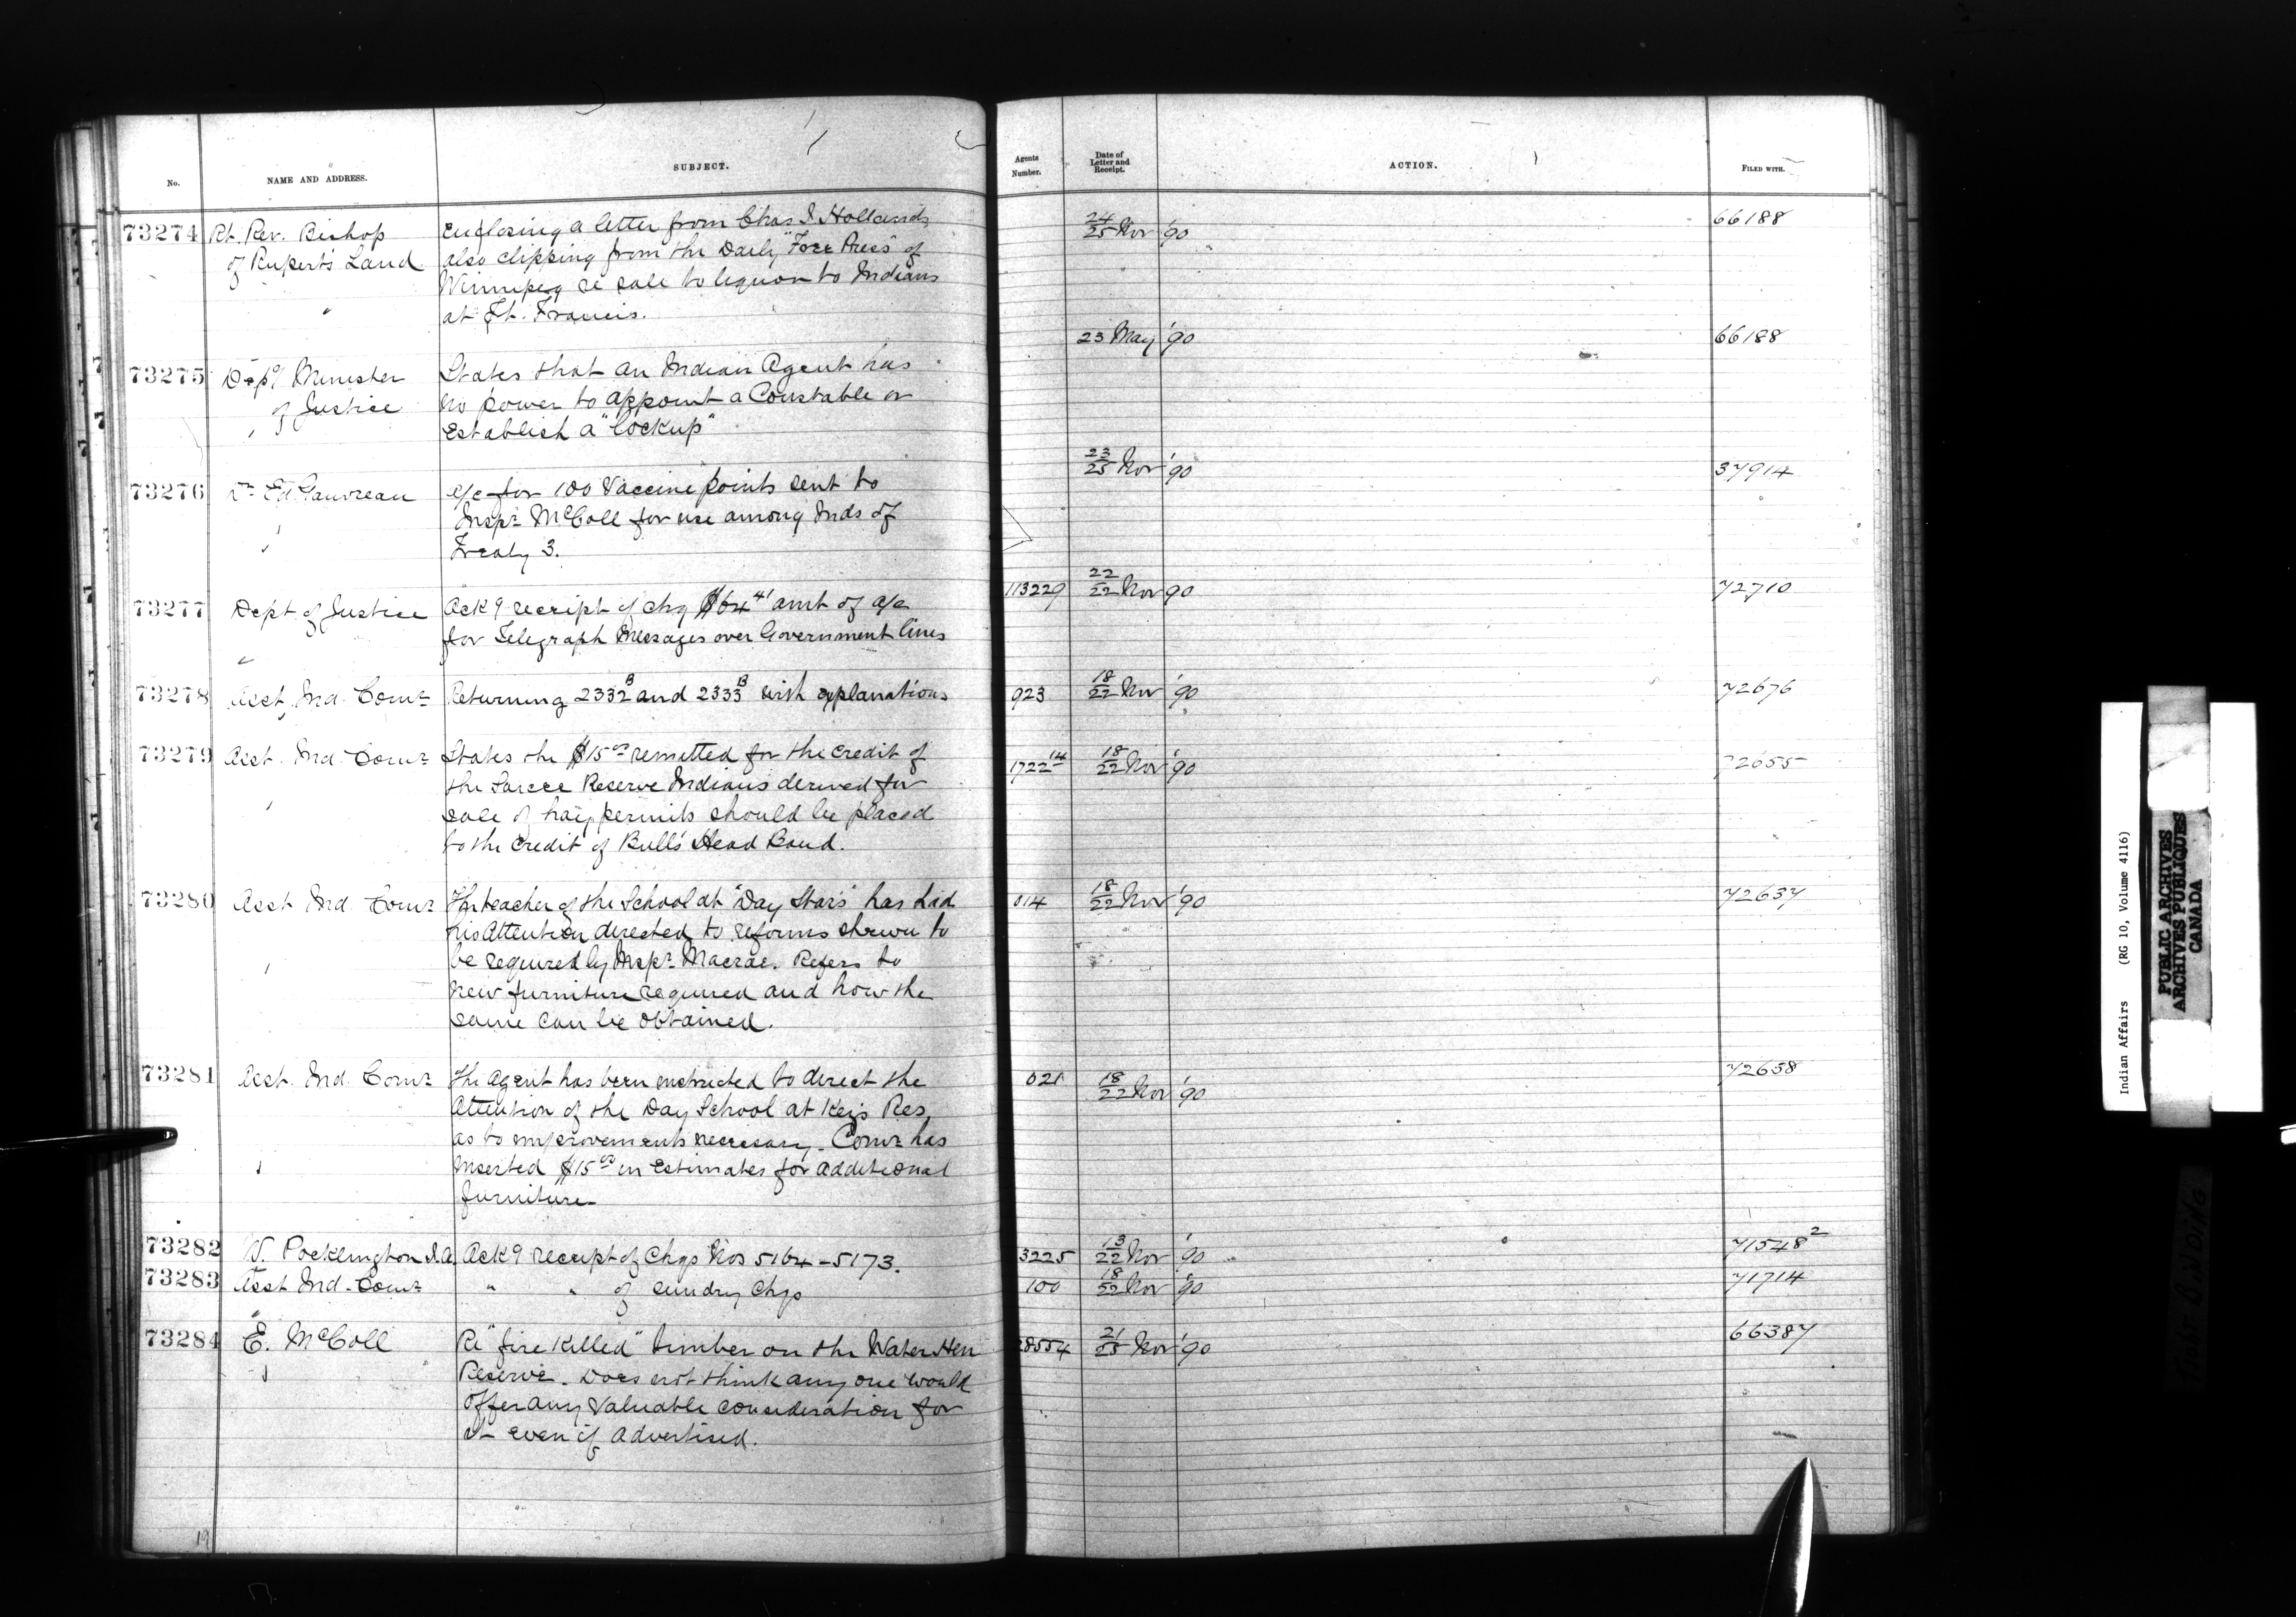 No. NAME AND ADDRESS. SUBJECT. Agents Number. Date of Letter and Receipt. ACTION. FILED WITH.
73274 Rt. Rev. Bishop Enclosing a letter from Chas S Hollands 24/25 Nov '90 66188
of Rupert's Land also clipping from the Daily "Free Press" of
Winnipeg re sale to liquor to Indians
at Ft. Francis.
73275 Depy Minister States that an Indian Agent has 23 May '90 66188
of Justice no power to appoint a Constable or
Establish a "Lockup"
73276 Dr Ed Gauvreau a/c for 100 Vaccine points sent to 23/25 Nov '90 37914
Inspr McColl for use among Inds of
Treaty 3.
73277 Dept of Justice Ack g receipt of chq $64 41 amt of a/c 113229 22/22 Nov 90 72710
for Telegraph Messages over Government lines
73278 Asst Ind. Comr Returning 2332B and 2333B with explanations 923 18/22 Nov '90 72676
73279 Asst. Ind. Comr States the $15 00 remitted for the credit of 1722 14 18/22 Nov '90 72655
the Sarcee Reserve Indians derived for
sale of hay permits should be placed
to the credit of Bull's Head Band.
73280 Asst Ind. Comr The teacher of the School at "Day Stars" has had 014 18/22 Nov '90 72637
his Attention directed to reforms shewn to
be required by Inspr Macrae. Refers to
new furniture required and how the
same can be obtained.
73281 Asst. Ind. Comr The Agent has been instructed to direct the 021 18/22 Nov '90 72638
Attention of the Day School at Keys Res,
as to improvements necessary. Comr has
inserted $15 00 in Estimates for additional
furniture
73282 W. Pocklington I.A. Ack g receipt of Chqs Nos 5164 - 5173. 3225 13/22 Nov '90 71548 2
73283 Asst Ind. Comr " " of sundry Chqs 100 18/22 Nov '90 71714
73284 E. McColl Re "fire killed" timber on the Water Hen 28554 21/25 Nov '90 66387
Reserve. Does not think any one would
offer any valuable consideration for
it even if advertised.
19
Indian Affairs (RG 10, Volume 4116)
PUBLIC ARCHIVES
ARCHIVES PUBLIQUES
CANADA